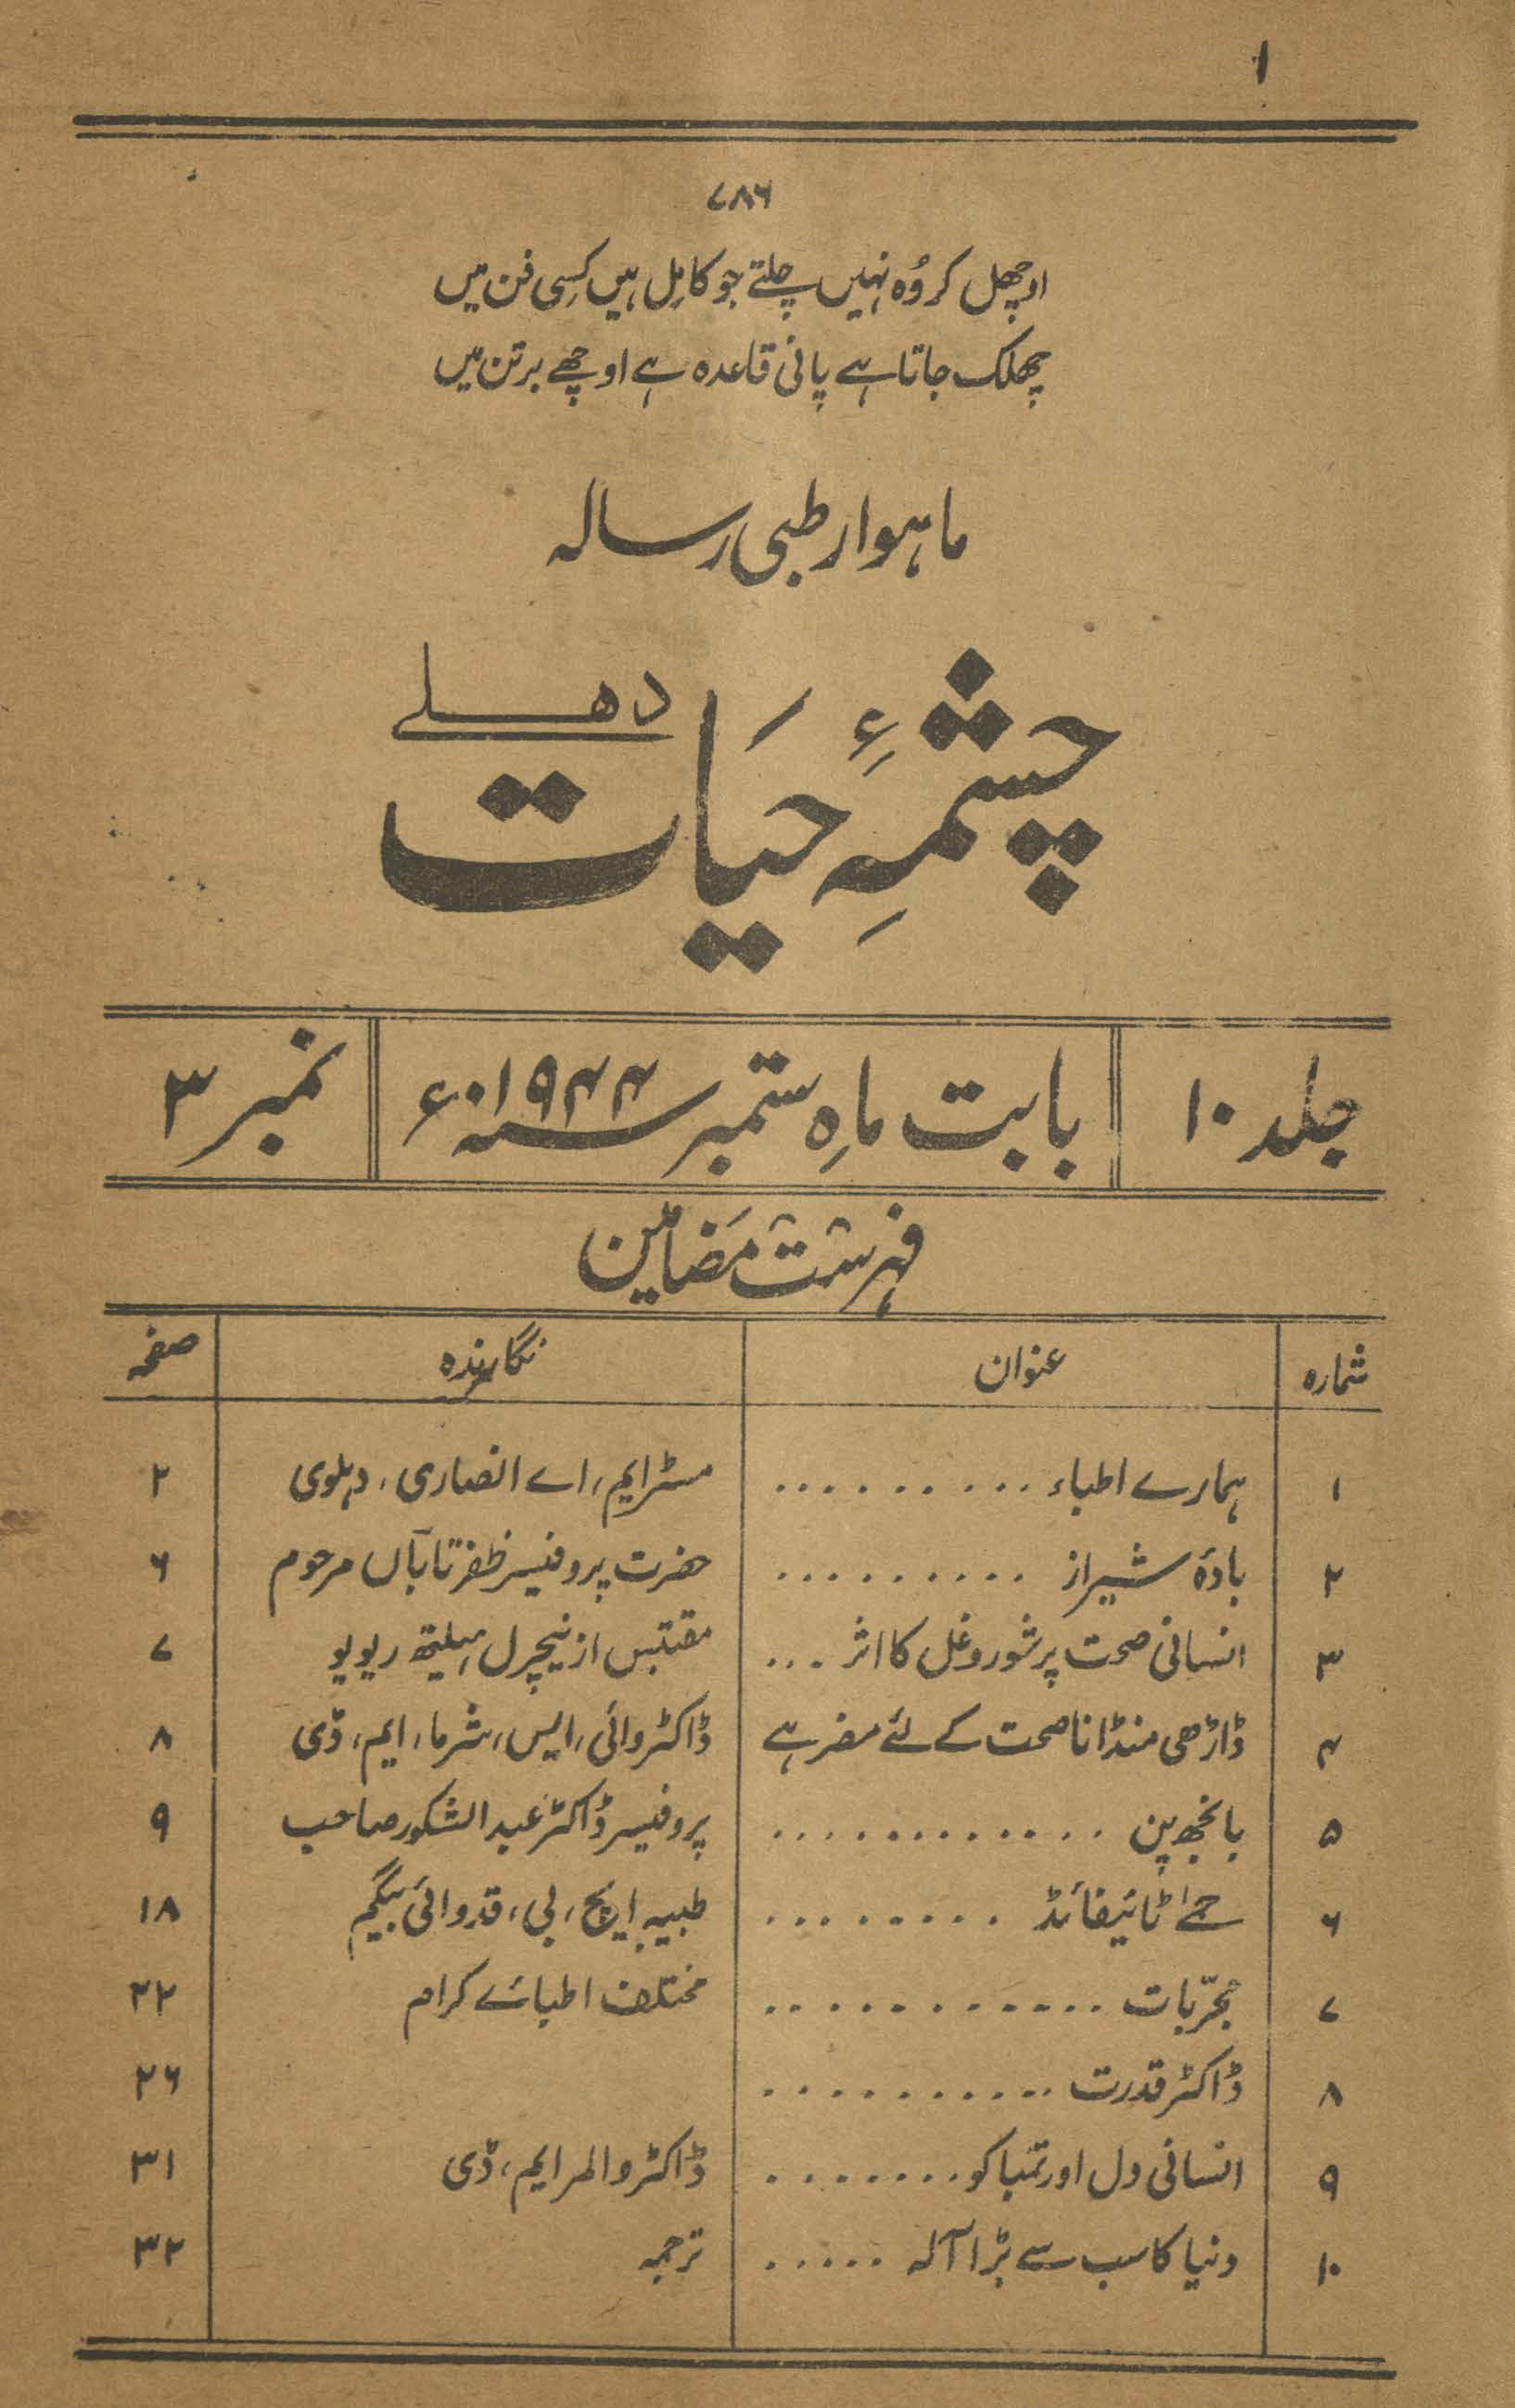 ۱
۷۸۶
اوچھل کر وُہ نہیں چلتے جو کامِل ہیں کِسی فن میں
چھلک جاتا ہے پانی قاعدہ ہے اوچھے برتن میں
ماہوار طبی رسالہ
چشمۂِ حیَات دھلے
جلد ۱۰ بابت ماہِ ستمبر سنہ ۱۹۴۴ء نمبر ۳
فہرست مَضامین
شمارہ عنوان نگارندہ صفحہ
۱ ہمارے اطباء .......... مسٹر ایم، اے انصاری، دہلوی ۲
۲ بادۂ شیراز ......... حضرت پروفیسر ظفر تاباں مرحوم ۶
۳ انسانی صحت پر شور و غل کا اثر ... مقتبس از نیچرل ہیلیتھ ریویو ۷
۴ ڈاڑھی منڈانا صحت کے لئے مضر ہے ڈاکٹر وائی، ایس، شرما، ایم، ڈی ۸
۵ بانجھ پن ............ پروفیسر ڈاکٹر عبد الشکور صاحب ۹
۶ حمےٰ ٹائیفائڈ ......... طبیبہ ایچ، بی، قدوائی بیگم ۱۸
۷ مجرّبات ............ مختلف اطبائے کرام ۲۲
۸ ڈاکٹر قدرت ........... ۲۶
۹ انسانی دل اور تمباکو ........ ڈاکٹر والمر ایم، ڈی ۳۱
۱۰ دنیا کا سب سے بڑا آلہ ..... ترجمہ ۳۲